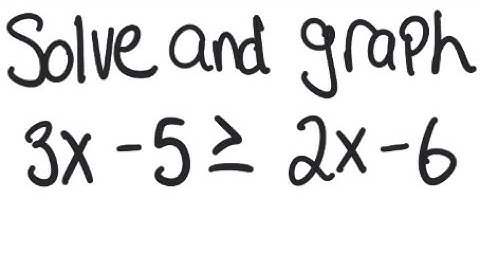 Solve and graph
3x - 5 ≥ 2x - 6